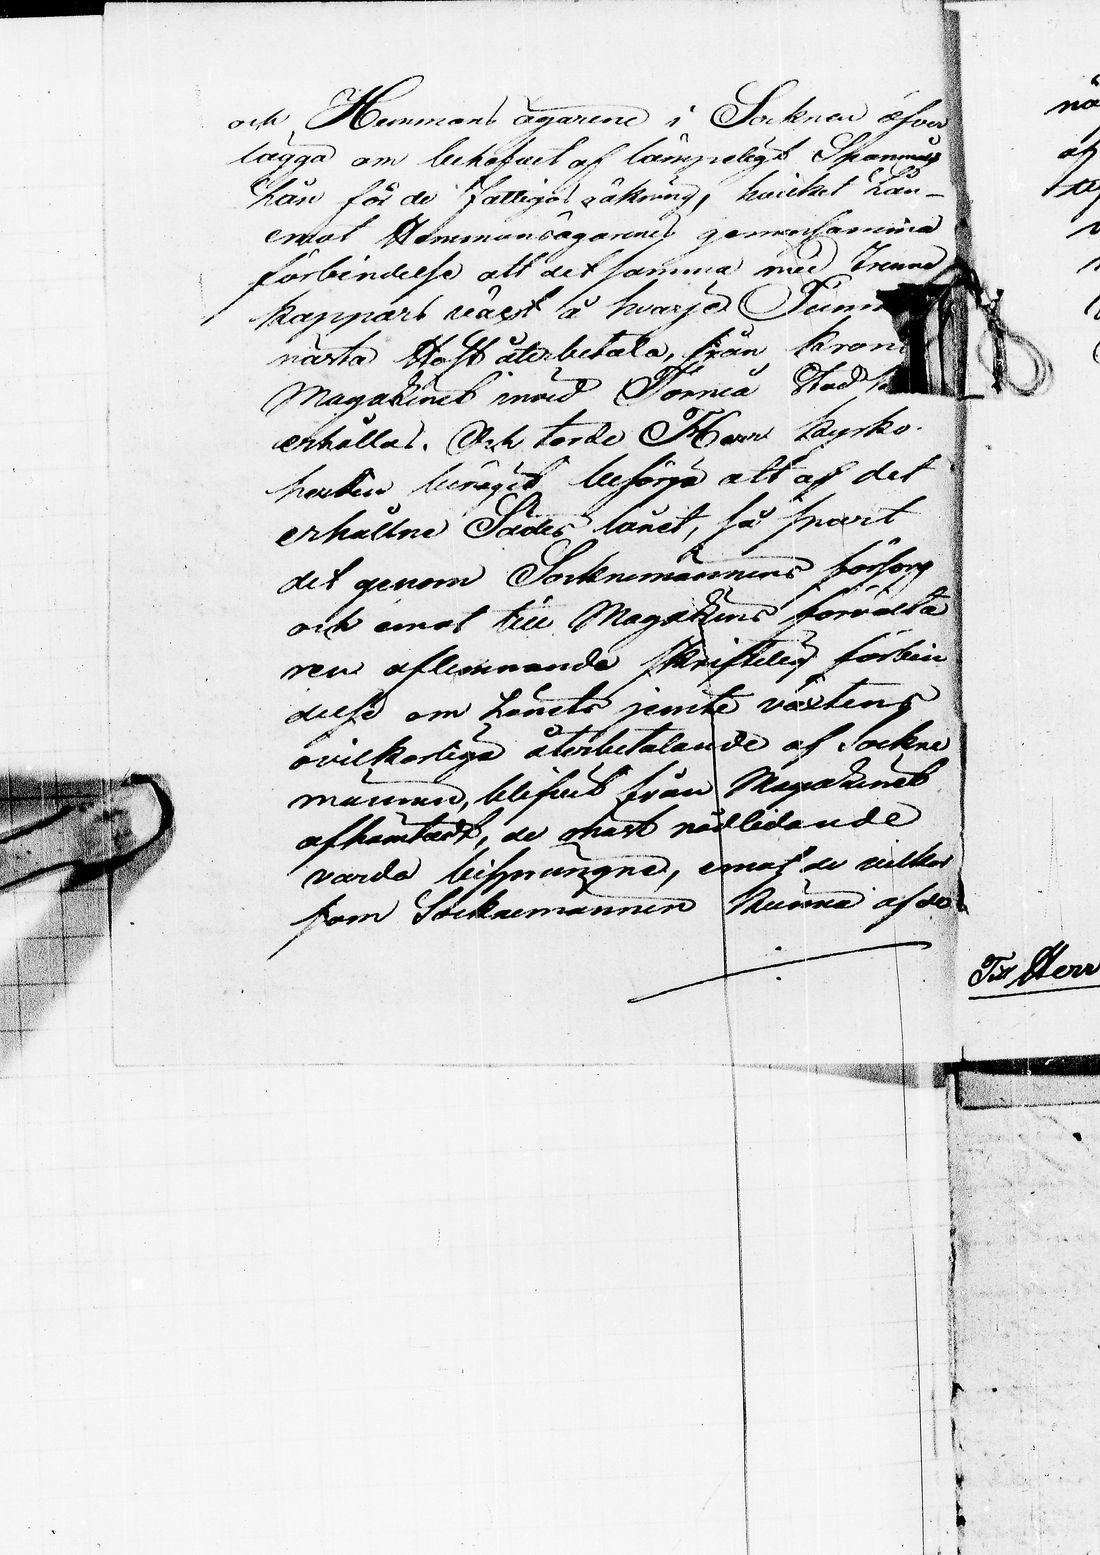 och Hemmans ägarene i Socknen öfver
lägga om behofvet af lämpeligt Spanmåls
Lån för de fattigas räkning, hvilket Lån
emot Hemmansägarnes gemensamma
förbindelse att det samma med Trenne
kappars växt å hvarje Tunn
nästa Höst återbetala, från Krono
Magazinet invid Torneå Stad
erhållas. Och torde Herr Kyrko-
herden benäget besörja att af det
erhållne Sädes lånet, så snart
det genom Socknemännens försorg
och emot till Magazins förvalta
ren aflemnande skriftelig förbin
delse om Lånets jemte växtens
ovilkorliga återbetalande af Sockne
männen, blifvit från Magazinet
afhämtadt, de mest nödlidande
varda bisprungne, emot de vilkor
som Socknemännen kunna af de
Till Herr